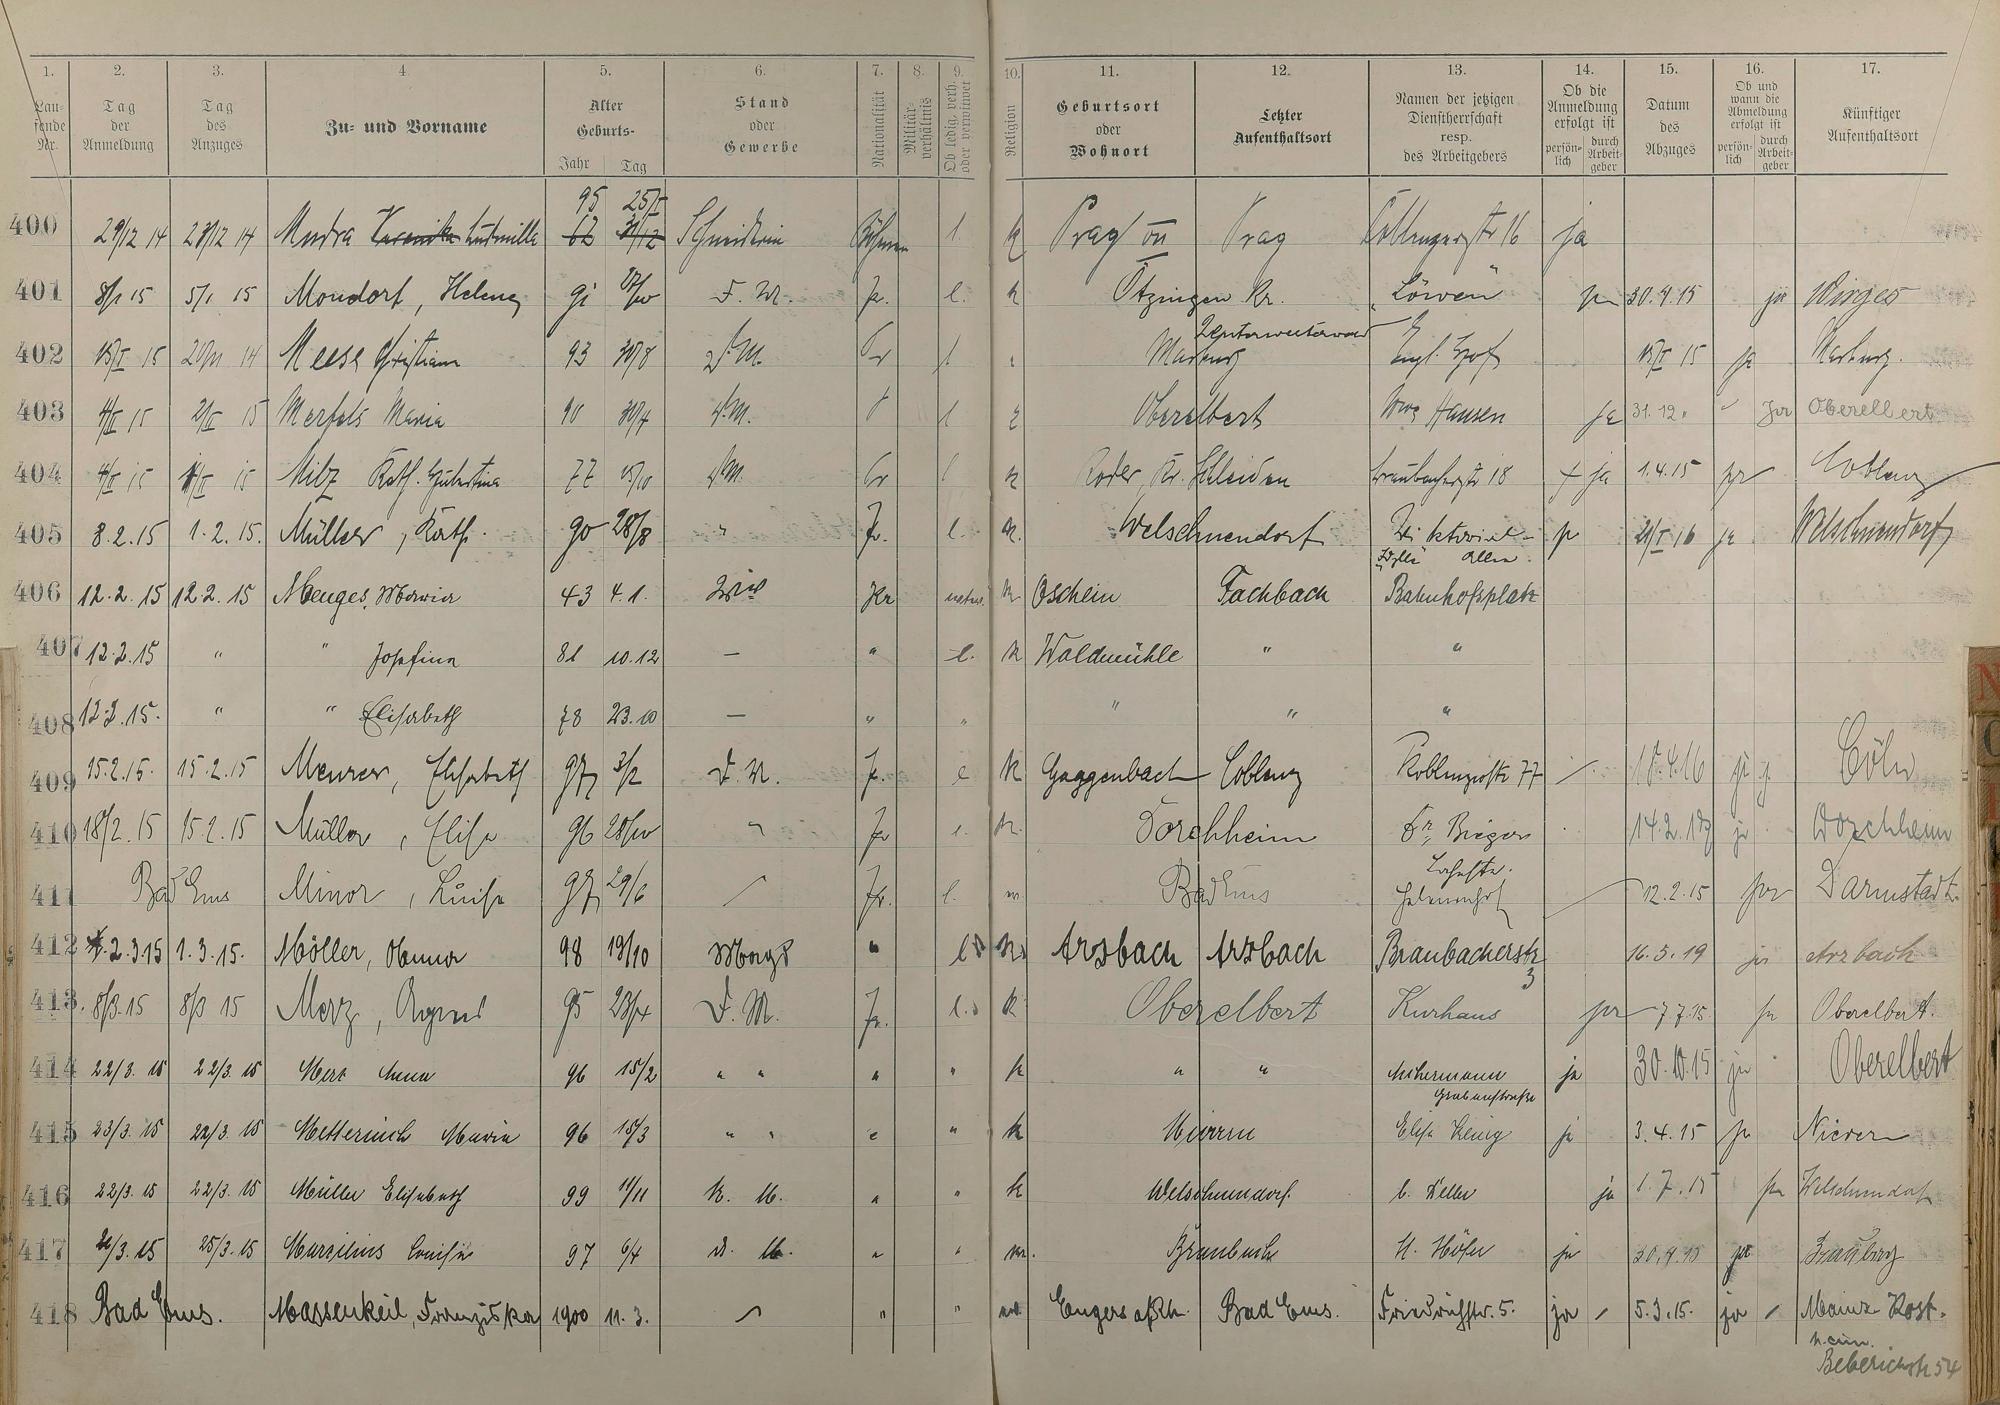 1. 2. 3. 4. 5. 6. 7. 8. 9. 10. 11. 12. 13. 14. 15. 16. 17.
Lau-
fende
Nr.
Tag
der
Anmeldung
Tag
des
Anzuges
Zu- und Vorname
Alter
Geburts-
Jahr Tag
Stand
oder
Gewerbe
Nationalität
Militär-
verhältnis
Ob ledig, verh.
oder verwitwet
Religion
Geburtsort
oder
Wohnort
Letzter
Aufenthaltsort
Namen der jetzigen
Dienstherrschaft
resp.
des Arbeitgebers
Ob die
Anmeldung
erfolgt ist
persön-
lich
durch
Arbeit-
geber
Datum
des
Abzuges
Ob und
wann die
Abmeldung
erfolgt ist
persön-
lich
durch
Arbeit-
geber
Künftiger
Aufenthaltsort
95
400 29/12 14 28/12 14 Mudra Ludmilla 62 Schneiderin Böhmen l. k Prag VII Prag Coblenzerstr 16 ja
401 8/1 15 5/1 15 Mondorf, Helene 91 D. M. Pr. l. k Ötzingen Kr. "Löwen" ja 30.4.15 ja Wirges
Unterwesterwald
402 15 14 Meese Christiane 93 30/8 D. M. Pr l Marburg Engl. Hof 15 ja Marburg.
403 4/II 15 2/II 15 Merfels Maria 90 30/4 D. M. l Oberelbert Wwe Hansen ja 31.12. " ja Oberelbert
404 4/II 15 15 Milz Kath. Hubertina 77 15/10 D M. Pr l k Roder, Kr. Schleiden Braubacherstr 18 + ja 1.4.15 ja Coblenz
405 8.2.15 1.2.15. Müller, Kath. 90 28/8 " Pr. l. k. Welschneudorf Viktoria- ja 21/I 16 ja Welschneudorf
"Idylle" Allee.
406 12.2.15 12.2.15 Menges, Maria 43 4.1. k Oschein Fachbach Bahnhofsplatz
407 12.2.15 " " Josefina 81 10.12 — " l. k Waldmühle " "
408 12.2.15. " " Elisabeth 78 23.10 — " " " " "
409 15.2.15. 15.2.15 Meurer, Elisabeth 97 3/2 D. M. Pr. l k Gaggenbach Coblenz Koblenzerstr 77 18.4.16 ja Cöln
410 18/2.15 15.2.15 Müller, Elise 96 28/10 " Pr l. k. Horchheim Dr. Bieger 14.2.17 ja Horchheim
Lahnstr.
411 Bad Ems Minor, Luise 97 29/6 Pr. l. Bad Ems Helenenhof 12.2.15 ja Darmstadt.
412 2.3.15 1.3.15. Möller, Anna 98 19/10 Magd " l k Arzbach Arzbach Braubacherstr. 16.5.19 ja Arzbach
3
413. 8/3.15 8/3 15 Merz, Agnes 95 23/4 D. M. Pr. l. k Oberelbert Kurhaus ja 7.7.15. ja Oberelbert.
414 22/3. 15 22/3. 15 Merz Anna 96 15/2 " " " " k " " Ackermann ja 30.10.15 ja Oberelbert
Grabenstraße
415 23/3. 15 22/3. 15 Metternich Maria 96 15/3 " " " " k Nievern Elise ja 3.4.15 ja Nievern
416 22/3. 15 22/3. 15 Müller Elisabeth 99 11/11 K. M. " " k Welschneudorf. ja 1.7.15 ja Welschneudorf
417 /3.15 25/3.15 Marzilius Louise 97 6/4 D. M. " " Braubach H. Höfer ja 30.4.15 ja
418 Bad Ems. Massenkeil, Franziska 1900 11.3. " " Engers a/Rh. Bad Ems. Friedrichstr. 5. ja 5.3.15. ja Mainz-Kost-
heim.
54
N